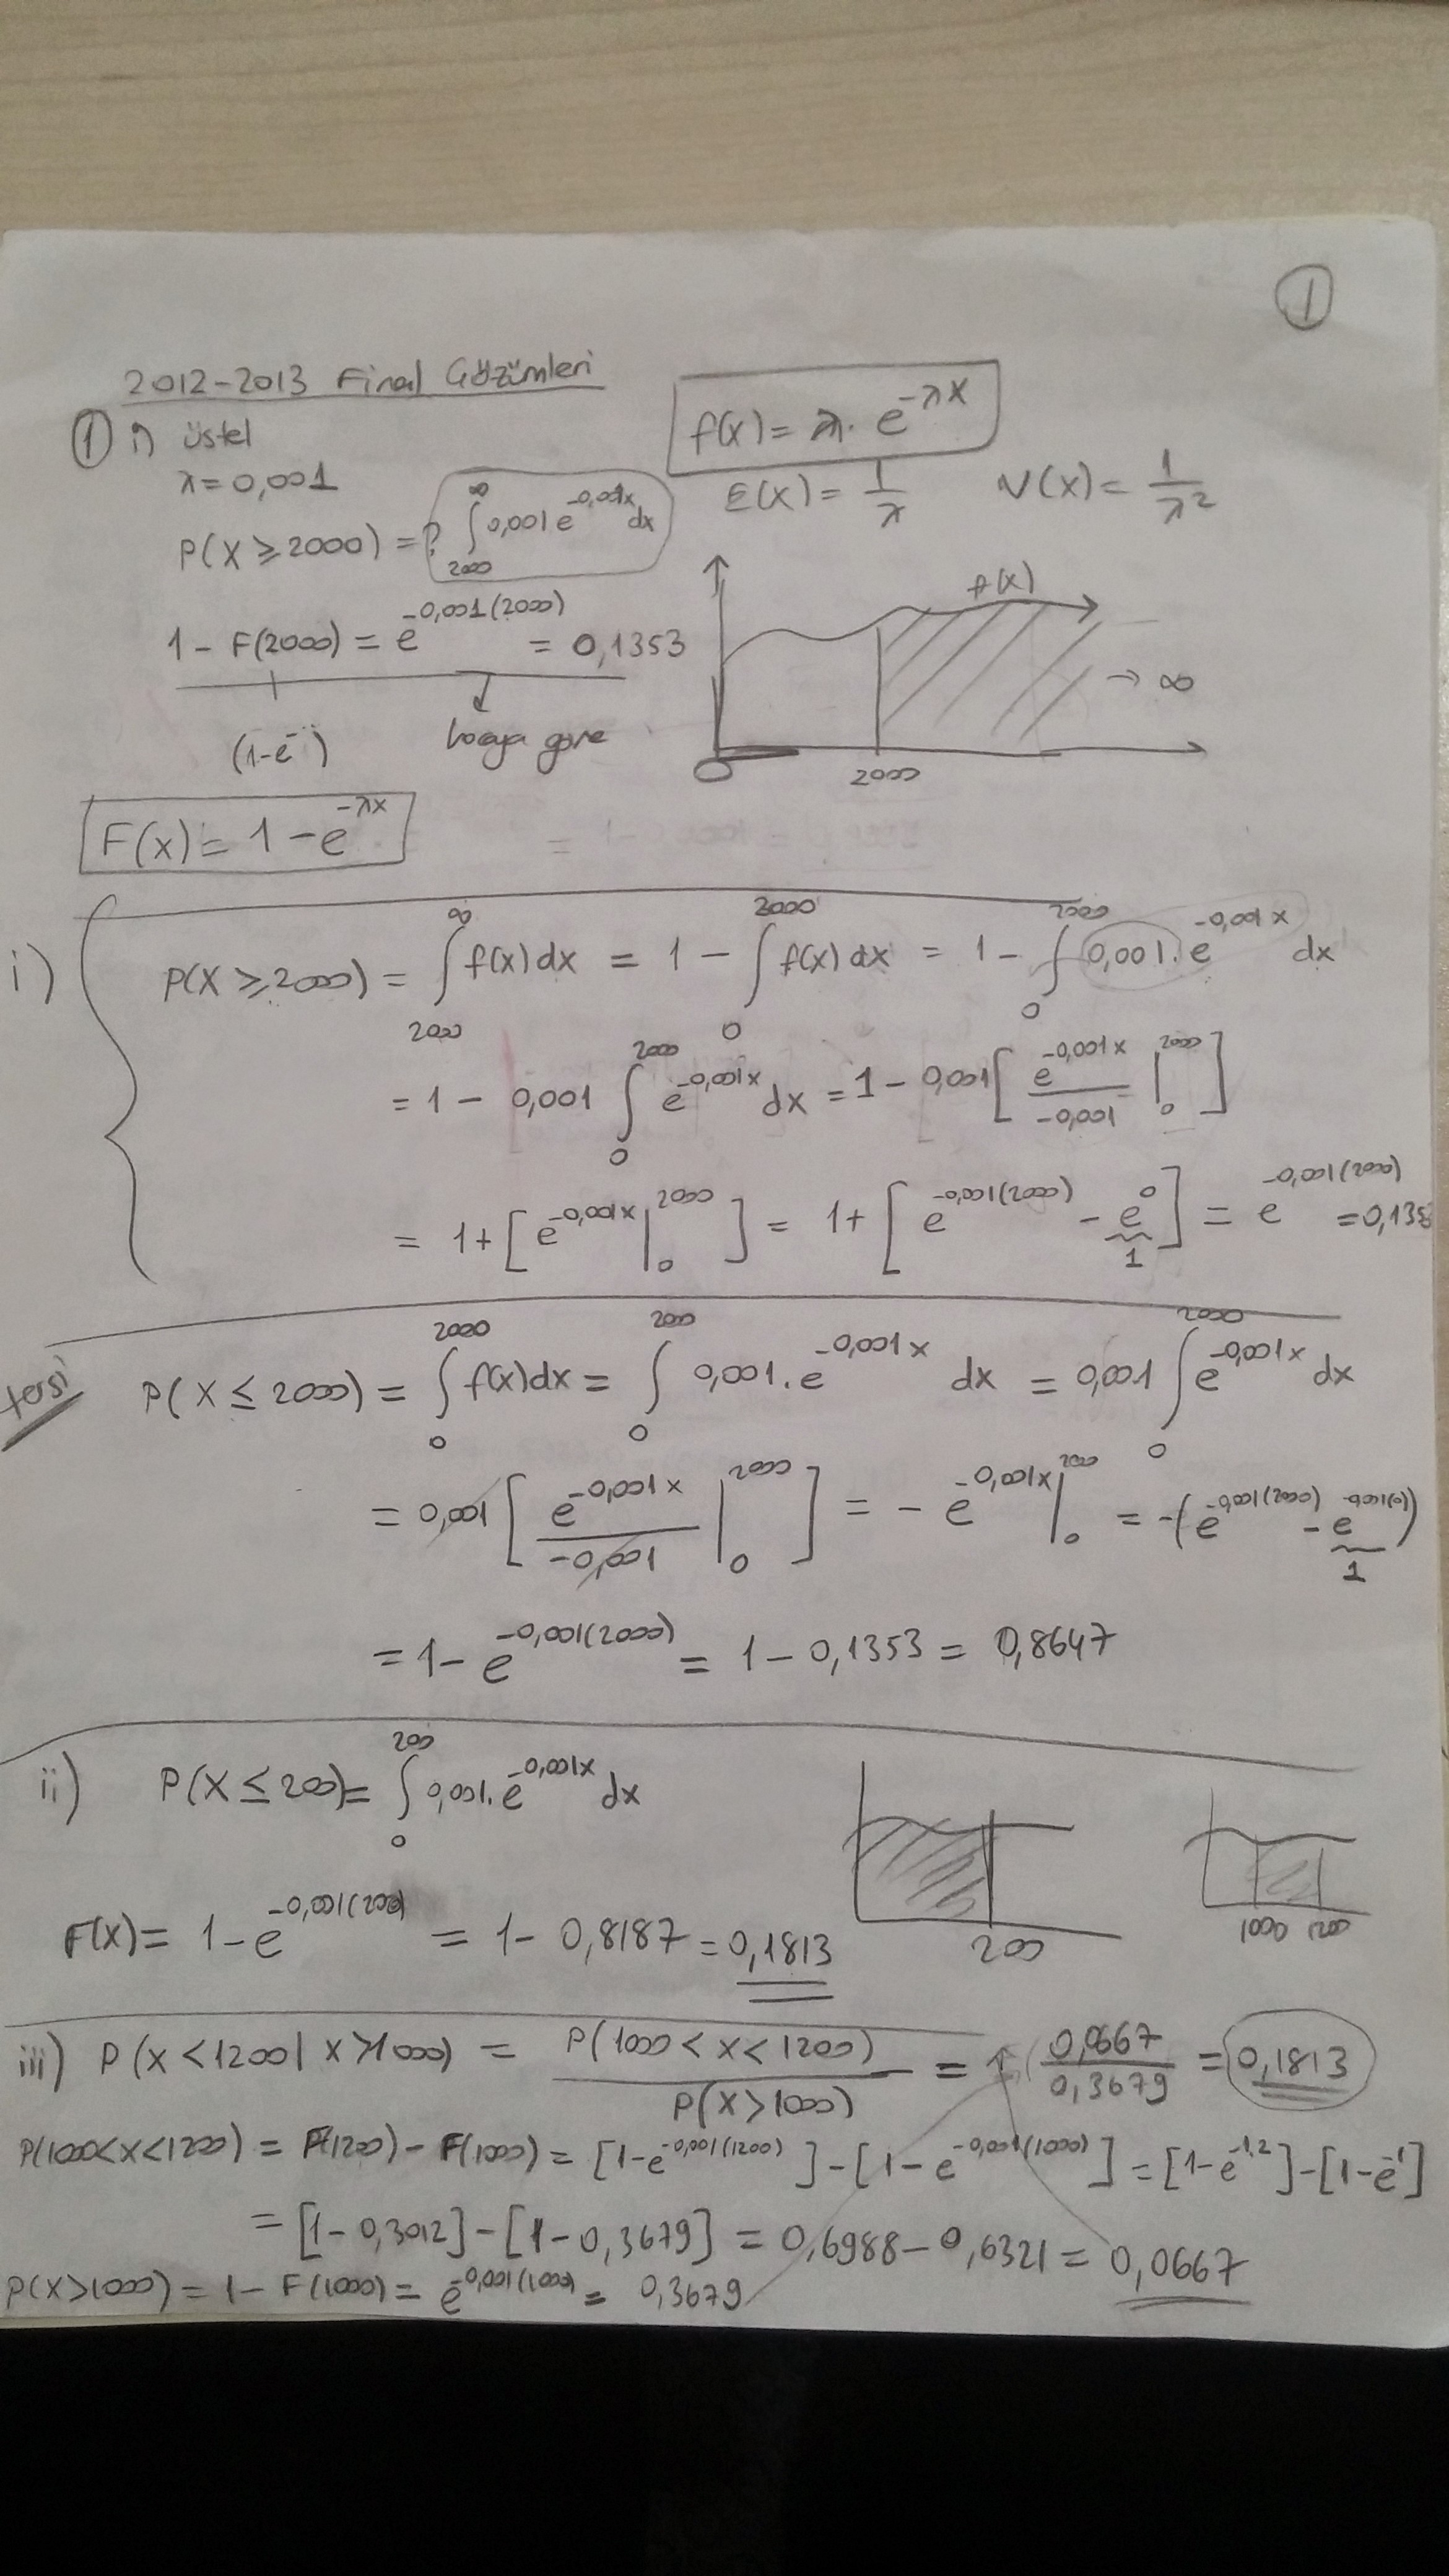 ①
2012-2013 Final Çözümleri
① i) üstel
f(x) = λ. e^-λx
λ = 0,001
E(X) = 1/λ V(X) = 1/λ^2
P(X ≥ 2000) = ? ∫_2000^∞ 0,001 e^-0,001x dx
f(x)
1 - F(2000) = e^-0,001(2000) = 0,1353
→ ∞
(1-e^-..) hocaya göre
0 2000
F(x) = 1 - e^-λx
i) P(X ≥ 2000) = ∫_2000^∞ f(x) dx = 1 - ∫_0^2000 f(x) dx = 1 - ∫_0^2000 0,001. e^-0,001x dx
= 1 - 0,001 ∫_0^2000 e^-0,001x dx = 1 - 0,001 [ e^-0,001x / -0,001 |_0^2000 ]
= 1 + [ e^-0,001x |_0^2000 ] = 1 + [ e^-0,001(2000) - e^0 ] = e^-0,001(2000) = 0,135
1
tersi P(X ≤ 2000) = ∫_0^2000 f(x) dx = ∫_0^2000 0,001. e^-0,001x dx = 0,001 ∫_0^2000 e^-0,001x dx
= 0,001 [ e^-0,001x / -0,001 |_0^2000 ] = - e^-0,001x |_0^2000 = -(e^-0,001(2000) - e^-0,001(0))
1
= 1 - e^-0,001(2000) = 1 - 0,1353 = 0,8647
ii) P(X ≤ 200) = ∫_0^200 0,001. e^-0,001x dx
F(x) = 1 - e^-0,001(200) = 1 - 0,8187 = 0,1813
200
1000 1200
iii) P(X < 1200 | X > 1000) = P(1000 < X < 1200) / P(X > 1000) = 0,0667 / 0,3679 = 0,1813
P(1000 < X < 1200) = F(1200) - F(1000) = [1 - e^-0,001(1200)] - [1 - e^-0,001(1000)] = [1 - e^-1,2] - [1 - e^-1]
= [1 - 0,3012] - [1 - 0,3679] = 0,6988 - 0,6321 = 0,0667
P(X > 1000) = 1 - F(1000) = e^-0,001(1000) = 0,3679